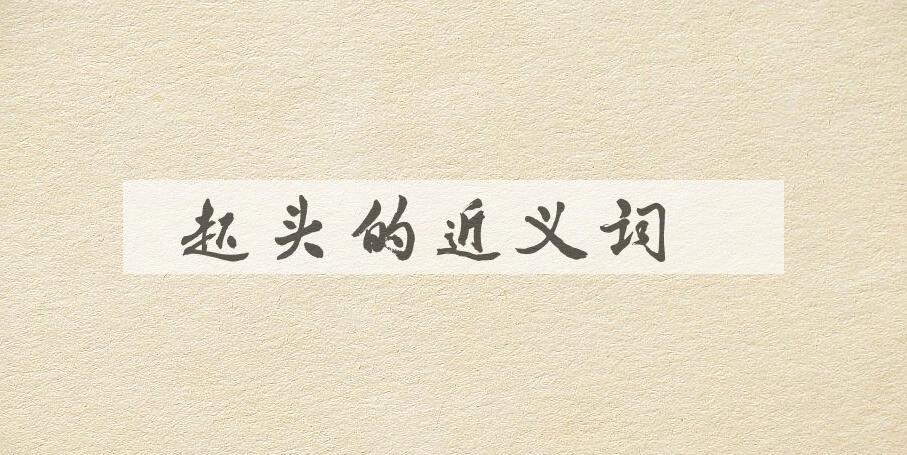 起头的近义词